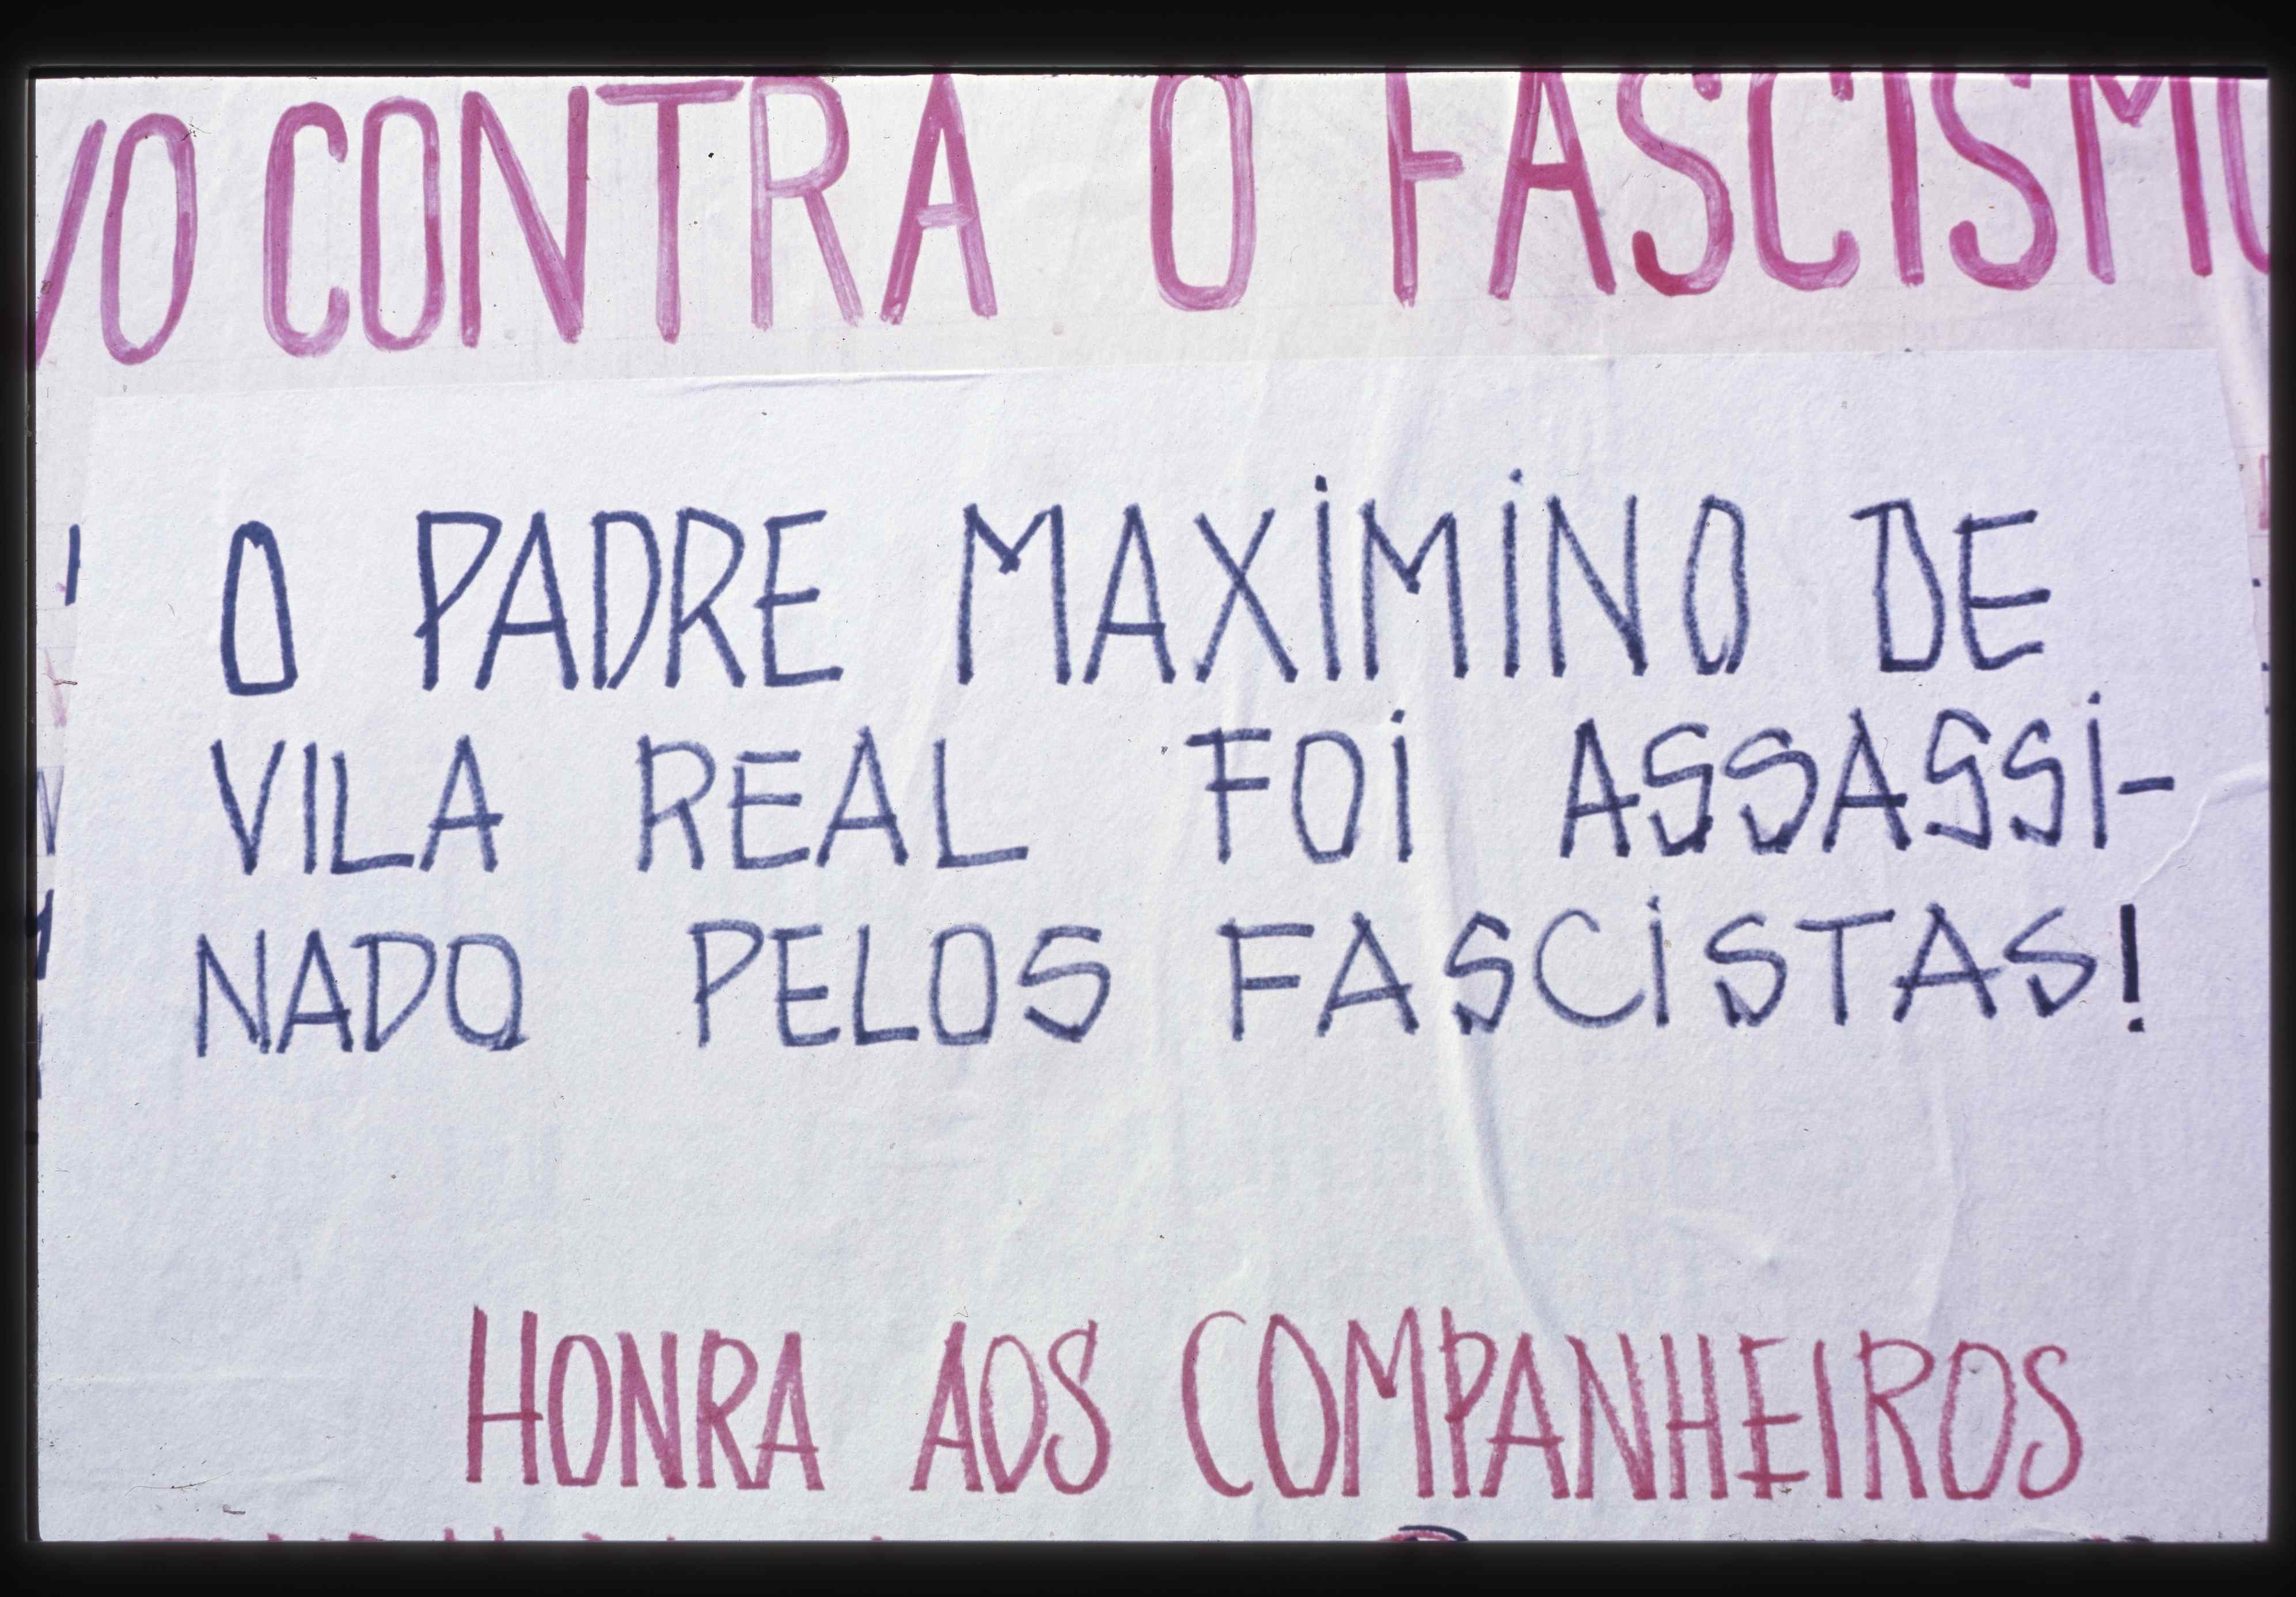 VO CONTRA O FASCISMO
O PADRE MAXIMINO DE
VILA REAL FOI ASSASSI-
NADO PELOS FASCISTAS!
HONRA AOS COMPANHEIROS